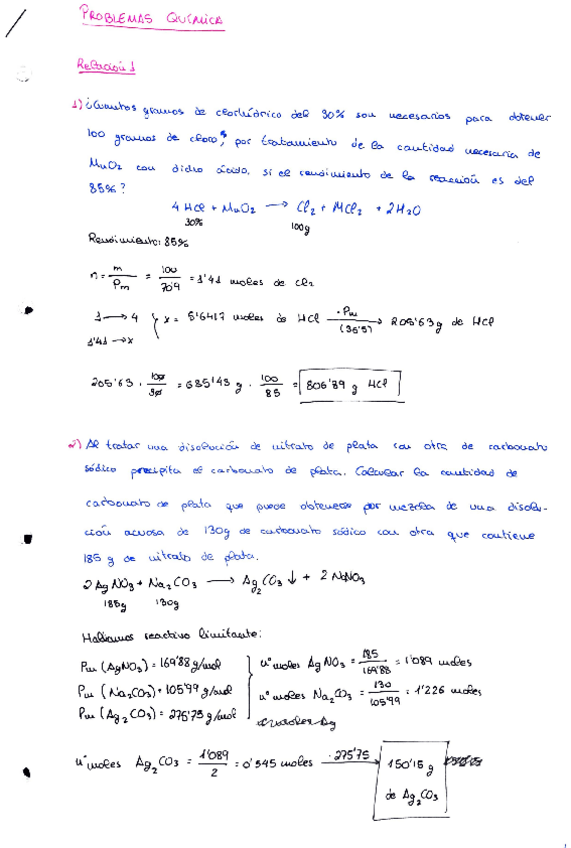 PROBLEMAS QUÍMICA
Relación 1
1) ¿Cuántos gramos de clorhídrico del 30% son necesarios para obtener
100 gramos de cloro, por tratamiento de la cantidad necesaria de
MnO2 con dicho ácido, si el rendimiento de la reacción es del
85%?
4 HCl + MnO2 → Cl2 + MCl2 + 2H2O
30% 100g
Rendimiento: 85%
n = m/Pm = 100/70'9 = 1'41 moles de Cl2
1 → 4
1'41 → x } x = 5'6417 moles de HCl · Pm (36'5) → 205'63 g de HCl
205'63 · 100/30 = 685'43 g · 100/85 = 806'39 g HCl
2) Al tratar una disolución de nitrato de plata con otra de carbonato
sódico precipita el carbonato de plata. Calcular la cantidad de
carbonato de plata que puede obtenerse por mezcla de una disolu-
ción acuosa de 130g de carbonato sódico con otra que contiene
185 g de nitrato de plata.
2 AgNO3 + Na2CO3 → Ag2CO3 ↓ + 2 NaNO3
185g 130g
Hallamos reactivo limitante:
Pm (AgNO3) = 169'88 g/mol
Pm (Na2CO3) = 105'99 g/mol
Pm (Ag2CO3) = 275'75 g/mol
nº moles AgNO3 = 185/169'88 = 1'089 moles
nº moles Na2CO3 = 130/105'99 = 1'226 moles
nº moles Ag2CO3 = 1'089/2 = 0'545 moles · 275'75 → 150'15 g
de Ag2CO3